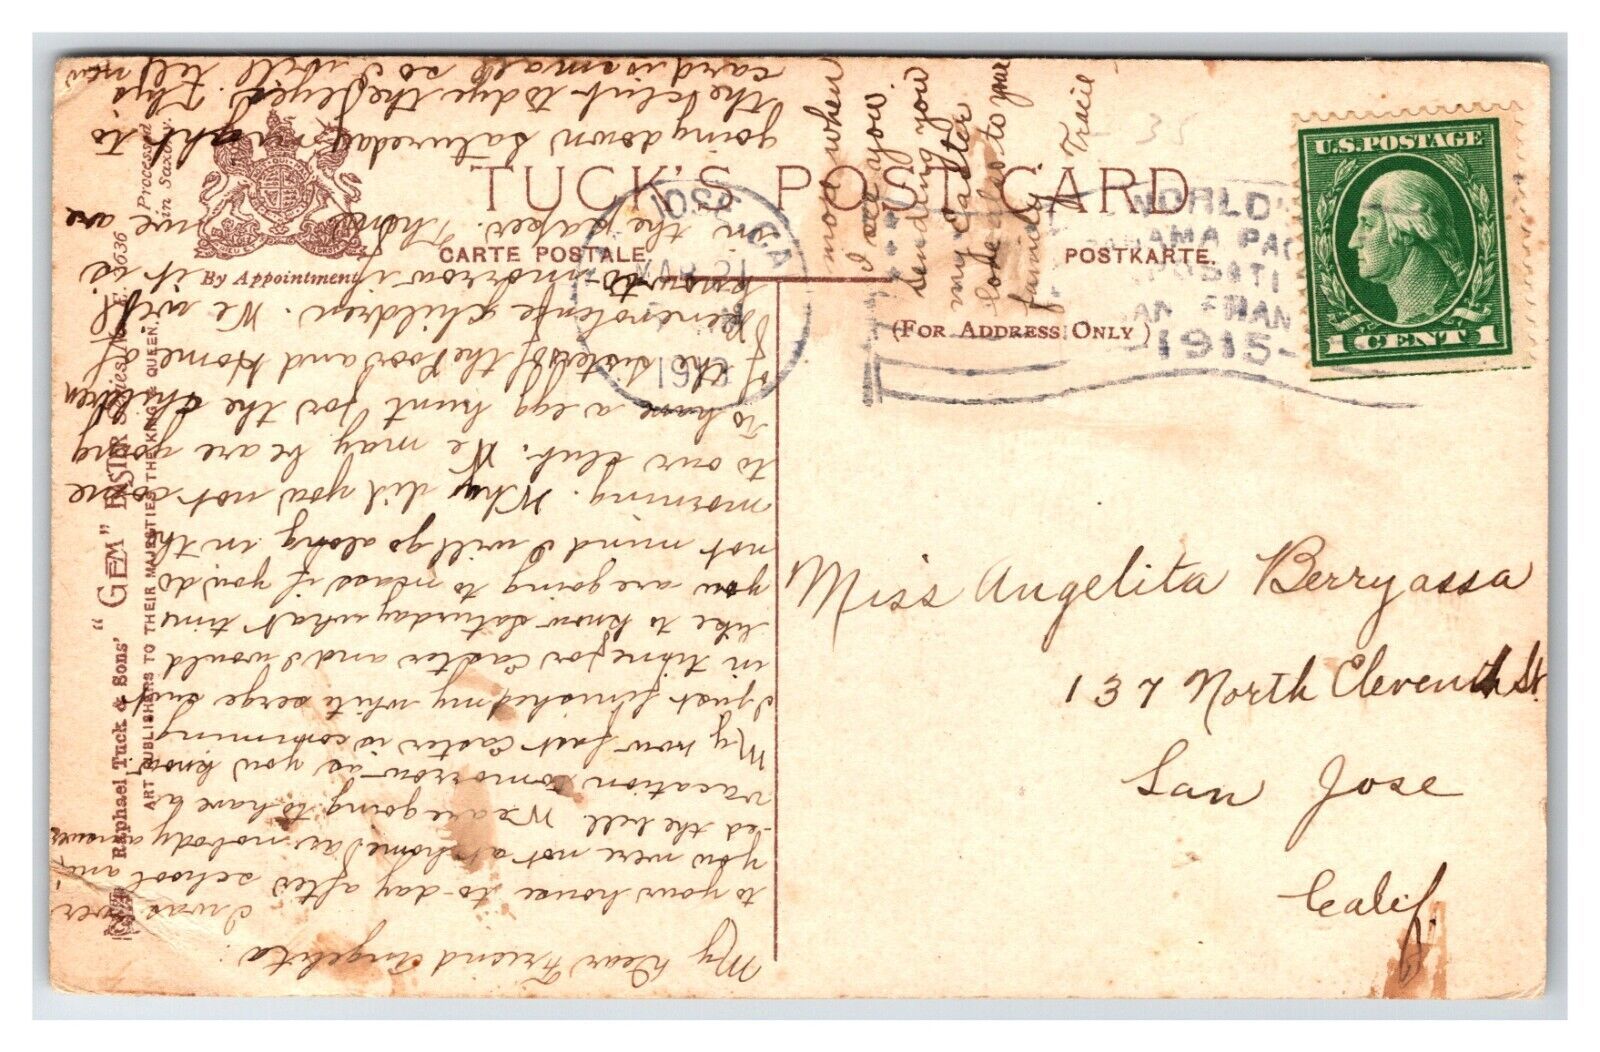 TUCK'S POST CARD
CARTE POSTALE.
POSTKARTE.
By Appointment.
(FOR ADDRESS ONLY)
Raphael Tuck & Sons' "GEM" EASTER Series No. E. 3636
ART PUBLISHERS TO THEIR MAJESTIES THE KING & QUEEN.
Processed
in Saxony.
U.S. POSTAGE
1 CENT 1
JOSE, CA
MAR 31
1915
WORLD'S
PANAMA PAC
POSITI
AN FRAN
-1915-
35
Miss Angelita Berryassa
137 North Eleventh St.
San Jose
Calif.
My Dear Friend Angelita:
I was over
to your house to-day after school and
you were not at home, as nobody answer
-ed the bell. We are going to have a
vacation tomorrow as you know
My how fast Easter is comming
I just finished my white serge suit
in time for Easter and I would
like to know saturday what time
you are going to mass if you do
not mind I will go along in the
morning. Why did you not come
to our club. We may be are going
to have a egg hunt for the children
of the sisters of the Poor and Home of
Benevolense children. We will
know to-morrow if it is
in the paper. Thoes we are
going down saturday night to
the club to dye the eyes. This
card is small so I will tell you
more when
I see you.
Sending you
my Easter
love also to your
family
Tracie